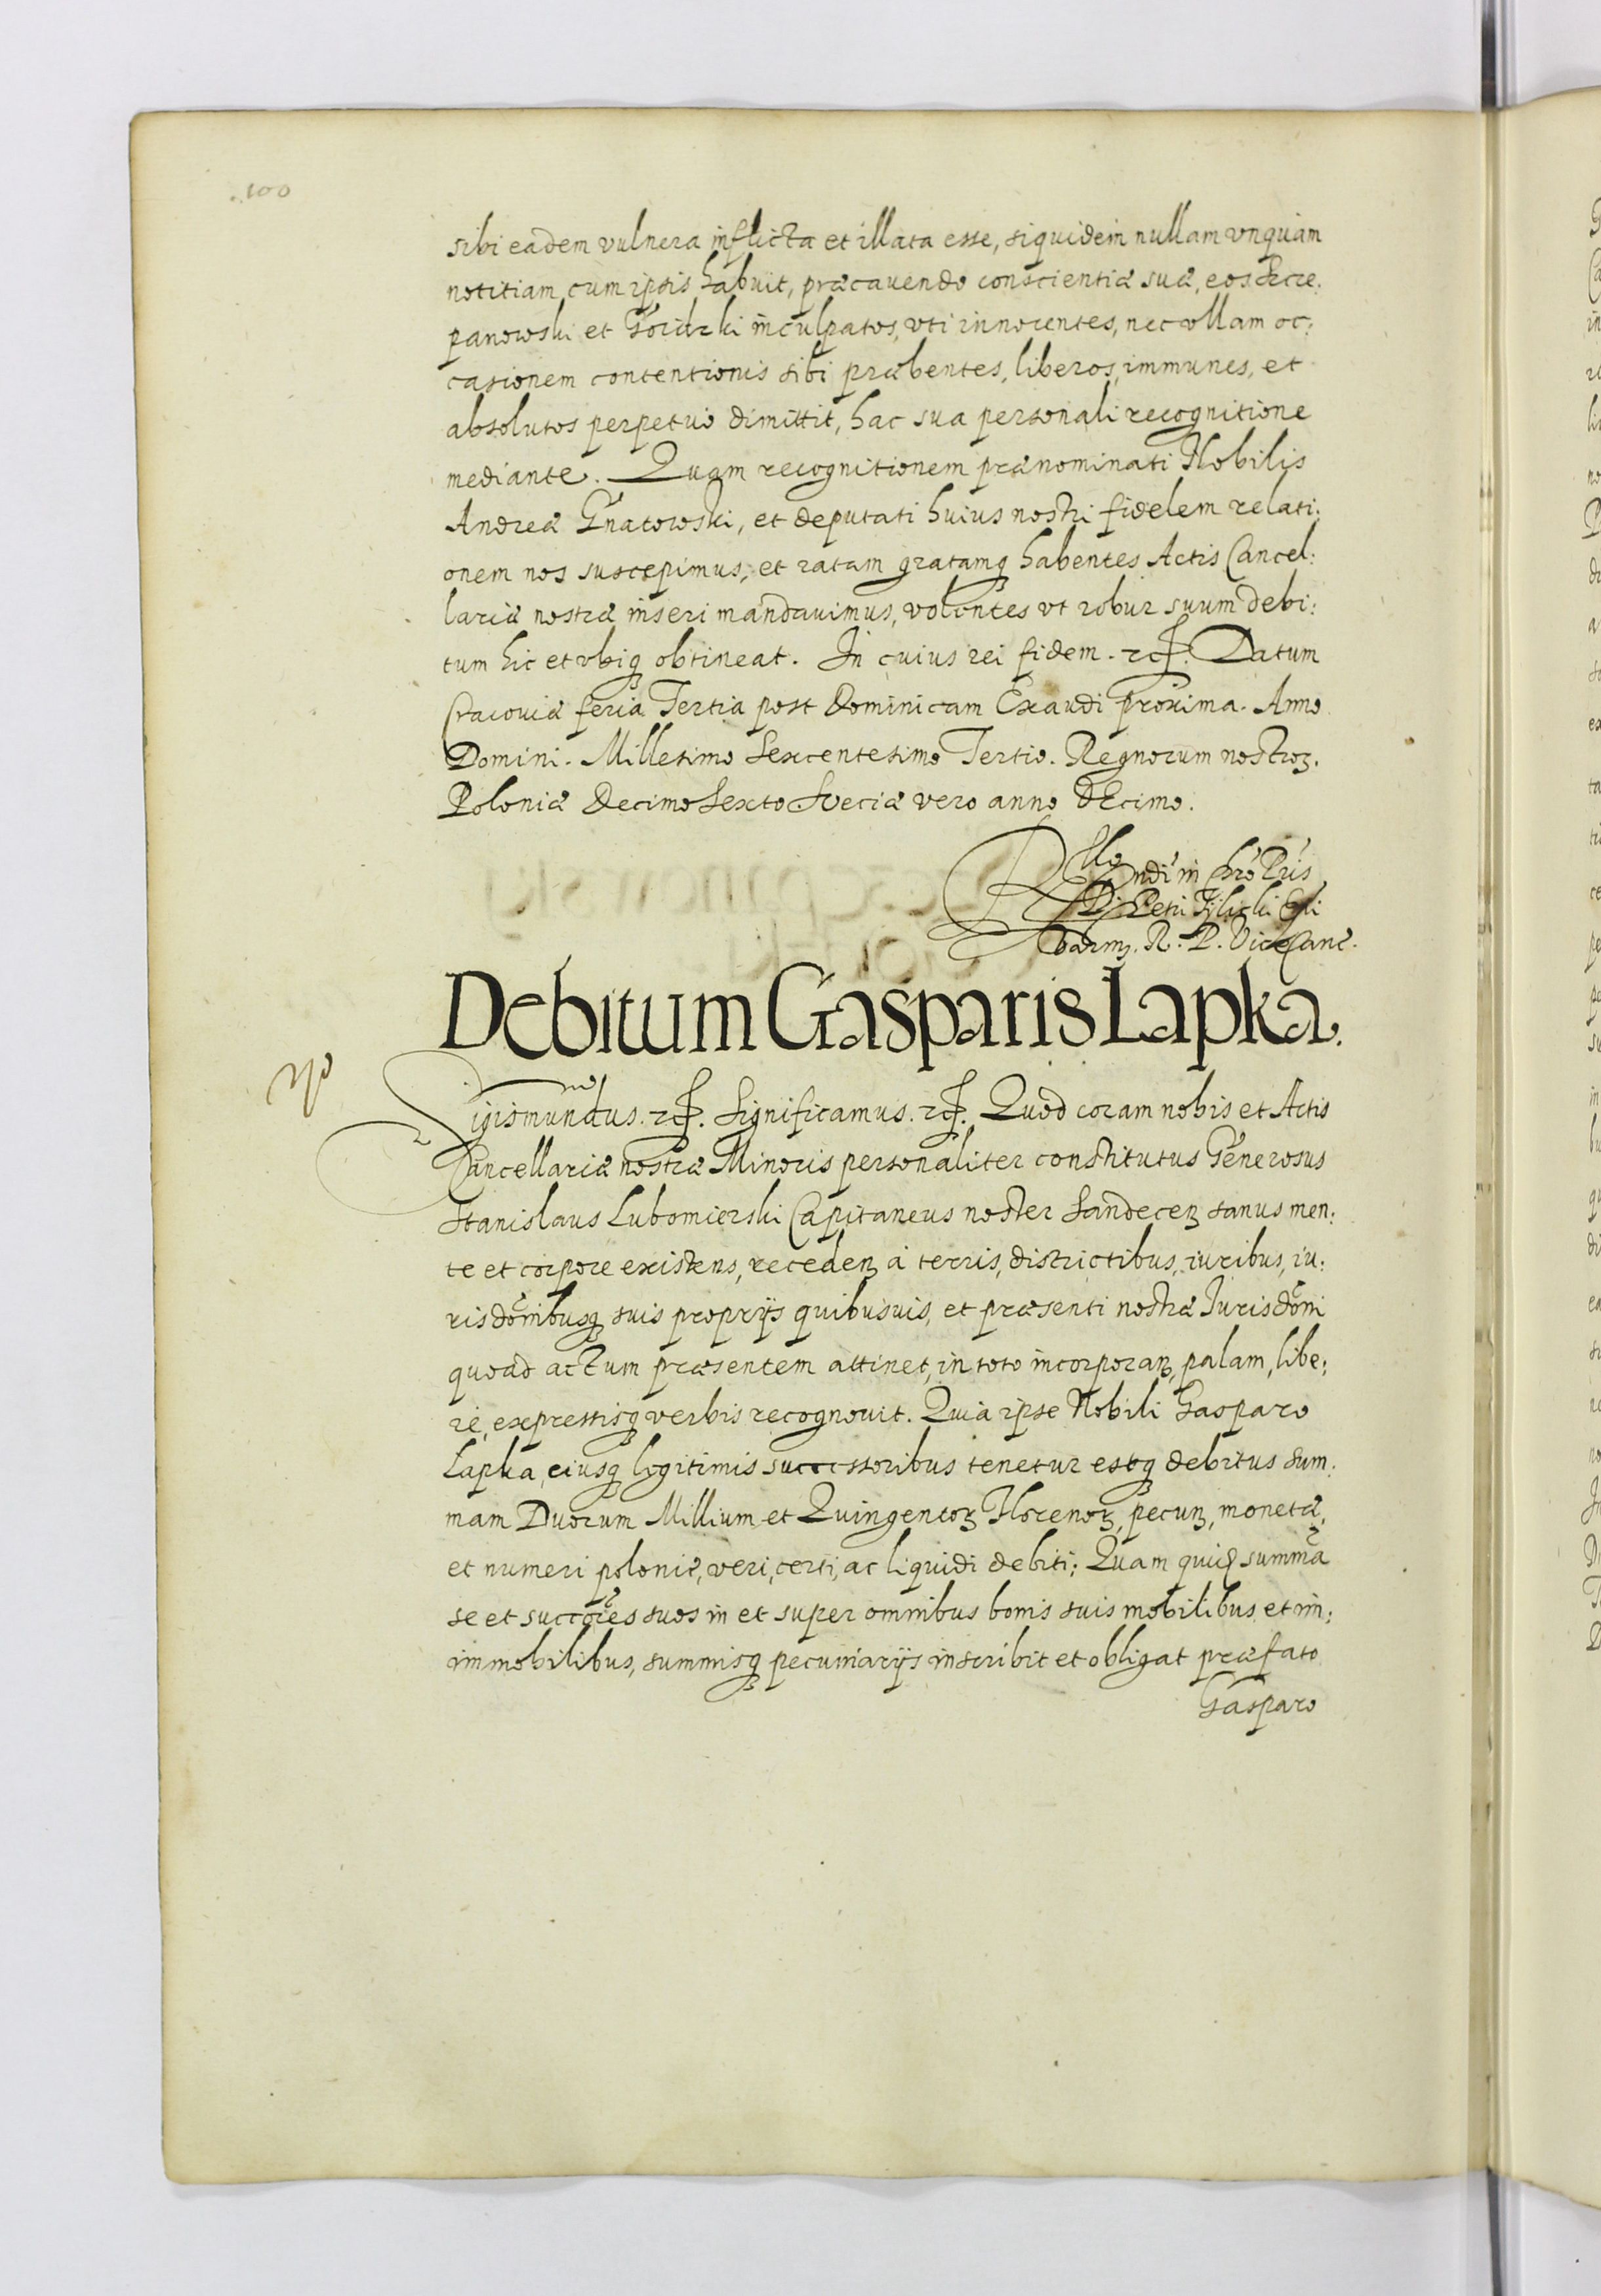 100
sibi eadem vulnera inflicta et illata esse, siquidem nullam vnquam
notitiam cum ipsis habuit, præcavendo conscientiæ suæ, eos Szcze:
panowski et Górdzki inculpatos, vti innocentes, nec vllam oc:
casionem contentionis sibi præbentes, liberos, immunes, et
absolutos perpetuò dimittit, hac sua personali recognitione
mediante. Quam recognitionem prænominati Nobilis
Andreæ Gnatowski, et deputati huius nostri fidelem relati:
onem nos suscepimus, et ratam gratamq habentes Actis Cancel:
lariæ nostræ inseri mandavimus, volentes vt robur suum debi:
tum hic et vbiq obtineat. In cuius rei fidem. etc. Datum
Cracoviæ feria Tertia post Dominicam Exaudi proxima. Anno
Domini. Millesimo Sexcentesimo Tertio. Regnorum nostroꝝ.
Poloniæ Decimo Sexto Sveciæ vero anno dEcimo.
Rllo
ndi in Chro Pris
D. Petri Tÿlicki Epi
Varm. R. P. Vice Canc.
Debitum Gasparis Lapka.
Sigismundus. etc. Significamus. etc. Quod coram nobis et Actis
Cancellariæ nostræ Minoris personaliter constitutus Generosus
Stanislaus Lubomierski Capitaneus noster Sandecenꝫ sanus men:
te et corpore existens, recedenꝫ à terris, districtibus, iuribus, iu:
risdonibusq suis proprijs quibusuis, et præsenti nostræ Jurisdoni
quoad actum præsentem attinet, in toto incorporanꝫ, palam, libe:
rè, expressisq verbis recognovit. Quia ipse Nobili Gasparo
Lapka, eiusq legitimis successoribus tenetur estq debitus sum:
mam Duorum Millium et Quingentoꝝ Florenoꝝ, pecunꝫ, monetæ,
et numeri polonic, veri, certi, ac liquidi debiti; Quam quid summa
se et succores suos in et super omnibus bonis suis mobilibus et im:
immobilibus, summisq pecuniarijs inscribit et obligat præfato
Gasparo